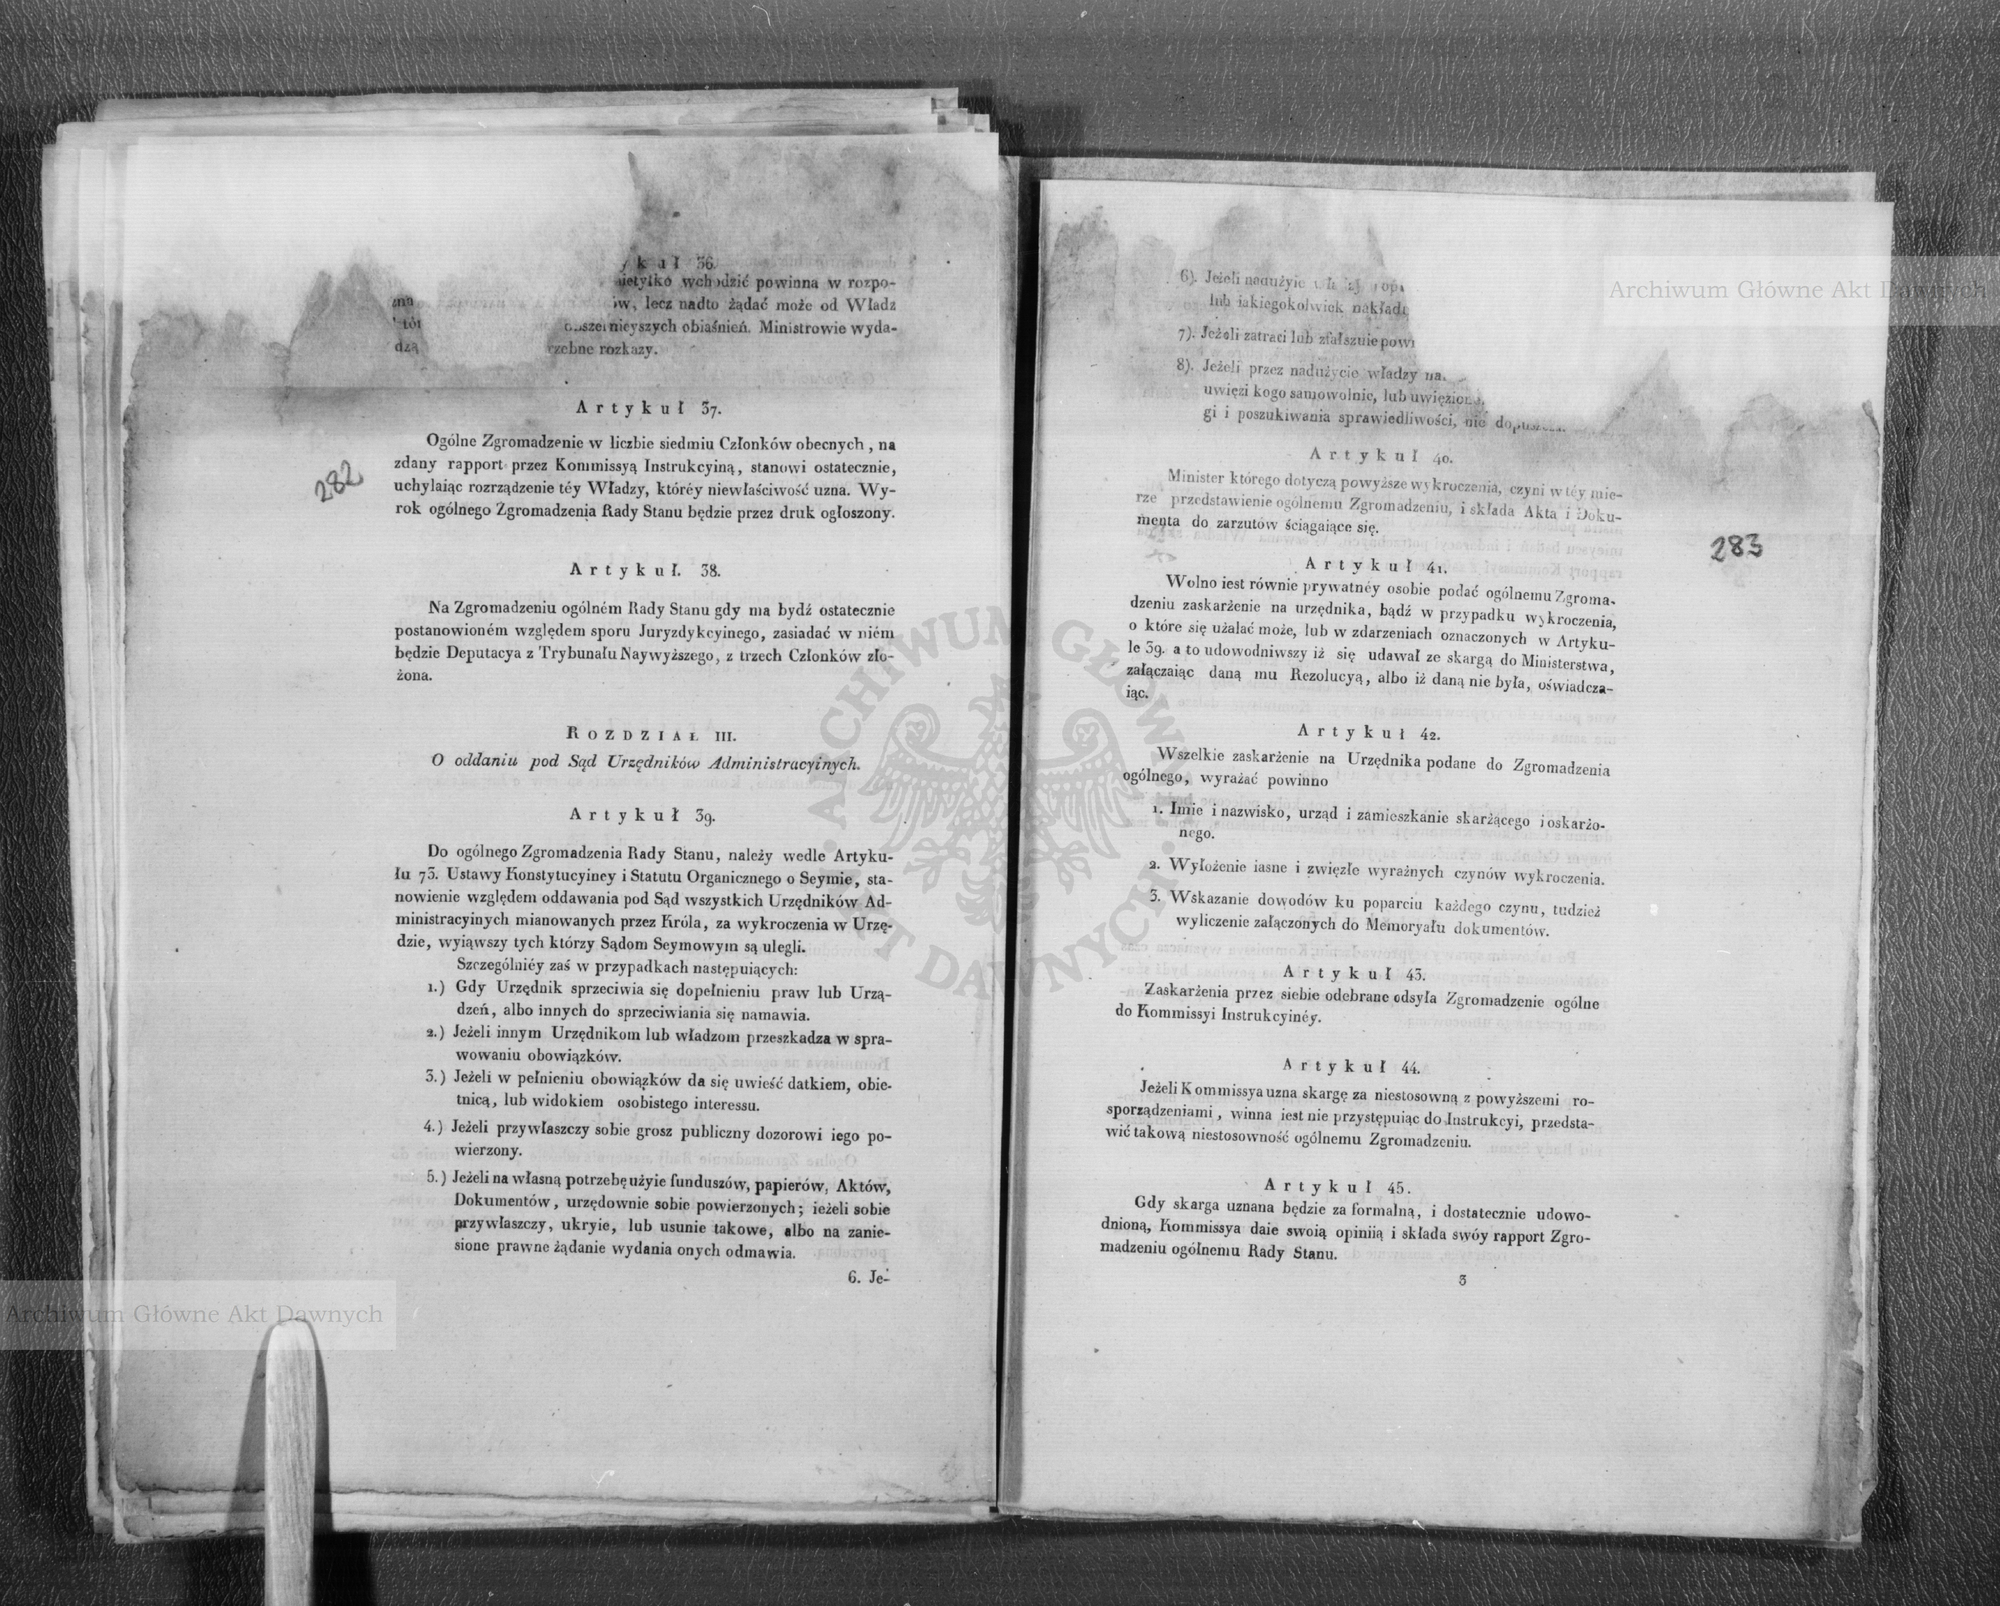 36.
wchodzić powinna w rozpo-
lecz nadto żądać może od Władz
obiaśnień. Ministrowie wyda-
dzą rozkazy.
Artykuł 37.
Ogólne Zgromadzenie w liczbie siedmiu Członków obecnych, na
zdany rapport przez Kommissyą Instrukcyiną, stanowi ostatecznie,
uchylaiąc rozrządzenie téy Władzy, któréy niewłaściwość uzna. Wy-
rok ogólnego Zgromadzenia Rady Stanu będzie przez druk ogłoszony.
282
Artykuł. 38.
Na Zgromadzeniu ogólném Rady Stanu gdy ma bydź ostatecznie
postanowioném względem sporu Juryzdykcyinego, zasiadać w niém
będzie Deputacya z Trybunału Naywyższego, z trzech Członków zło-
żona.
ROZDZIAŁ III.
O oddaniu pod Sąd Urzędników Administracyinych.
Artykuł 39.
Do ogólnego Zgromadzenia Rady Stanu, należy wedle Artyku-
łu 73. Ustawy Konstytucyiney i Statutu Organicznego o Seymie, sta-
nowienie względem oddawania pod Sąd wszystkich Urzędników Ad-
ministracyinych mianowanych przez Króla, za wykroczenia w Urzę-
dzie, wyiąwszy tych którzy Sądom Seymowym są ulegli.
Szczególniéy zaś w przypadkach następuiących:
1.) Gdy Urzędnik sprzeciwia się dopełnieniu praw lub Urzą-
dzeń, albo innych do sprzeciwiania się namawia.
2.) Jeżeli innym Urzędnikom lub władzom przeszkadza w spra-
wowaniu obowiązków.
3.) Jeżeli w pełnieniu obowiązków da się uwieść datkiem, obie-
tnicą, lub widokiem osobistego interessu.
4.) Jeżeli przywłaszczy sobie grosz publiczny dozorowi iego po-
wierzony.
5.) Jeżeli na własną potrzebę użyie funduszów, papierów, Aktów,
Dokumentów, urzędownie sobie powierzonych; ieżeli sobie
przywłaszczy, ukryie, lub usunie takowe, albo na zanie-
sione prawne żądanie wydania onych odmawia.
6. Je-
6). Jeżeli nadużyie
lub iakiegokolwiek
7). Jeżeli zatraci lub zfałszuie
8). Jeżeli przez nadużycie władzy
uwięzi kogo samowolnie, lub
gi i poszukiwania sprawiedliwości, nie
Artykuł 40.
Minister którego dotyczą powyższe wykroczenia, czyni w téy mie-
rze przedstawienie ogólnemu Zgromadzeniu, i składa Akta i Doku-
menta do zarzutów ściągaiące się.
283
Artykuł 41.
Wolno iest równie prywatnéy osobie podać ogólnemu Zgroma-
dzeniu zaskarżenie na urzędnika, bądź w przypadku wykroczenia,
o które się użalać może, lub w zdarzeniach oznaczonych w Artyku-
le 39. a to udowodniwszy iż się udawał ze skargą do Ministerstwa,
załączaiąc daną mu Rezolucyą, albo iż daną nie była, oświadcza-
iąc.
Artykuł 42.
Wszelkie zaskarżenie na Urzędnika podane do Zgromadzenia
ogólnego, wyrażać powinno
1. Imie i nazwisko, urząd i zamieszkanie skarżącego i oskarżo-
nego.
2. Wyłożenie iasne i zwięzłe wyraźnych czynów wykroczenia.
3. Wskazanie dowodów ku poparciu każdego czynu, tudzież
wyliczenie załączonych do Memoryału dokumentów.
Artykuł 43.
Zaskarżenia przez siebie odebrane odsyła Zgromadzenie ogólne
do Kommissyi Instrukcyinéy.
Artykuł 44.
Jeżeli Kommissya uzna skargę za niestosowną z powyższemi ro-
sporządzeniami, winna iest nie przystępuiąc do Instrukcyi, przedsta-
wić takową niestosowność ogólnemu Zgromadzeniu.
Artykuł 45.
Gdy skarga uznana będzie za formalną, i dostatecznie udowo-
dnioną, Kommissya daie swoią opiniią i składa swóy rapport Zgro-
madzeniu ogólnemu Rady Stanu.
3
Archiwum Główne Akt Dawnych
Archiwum Główne Akt Dawnych
ARCHIWUM GŁÓWNE AKT DAWNYCH